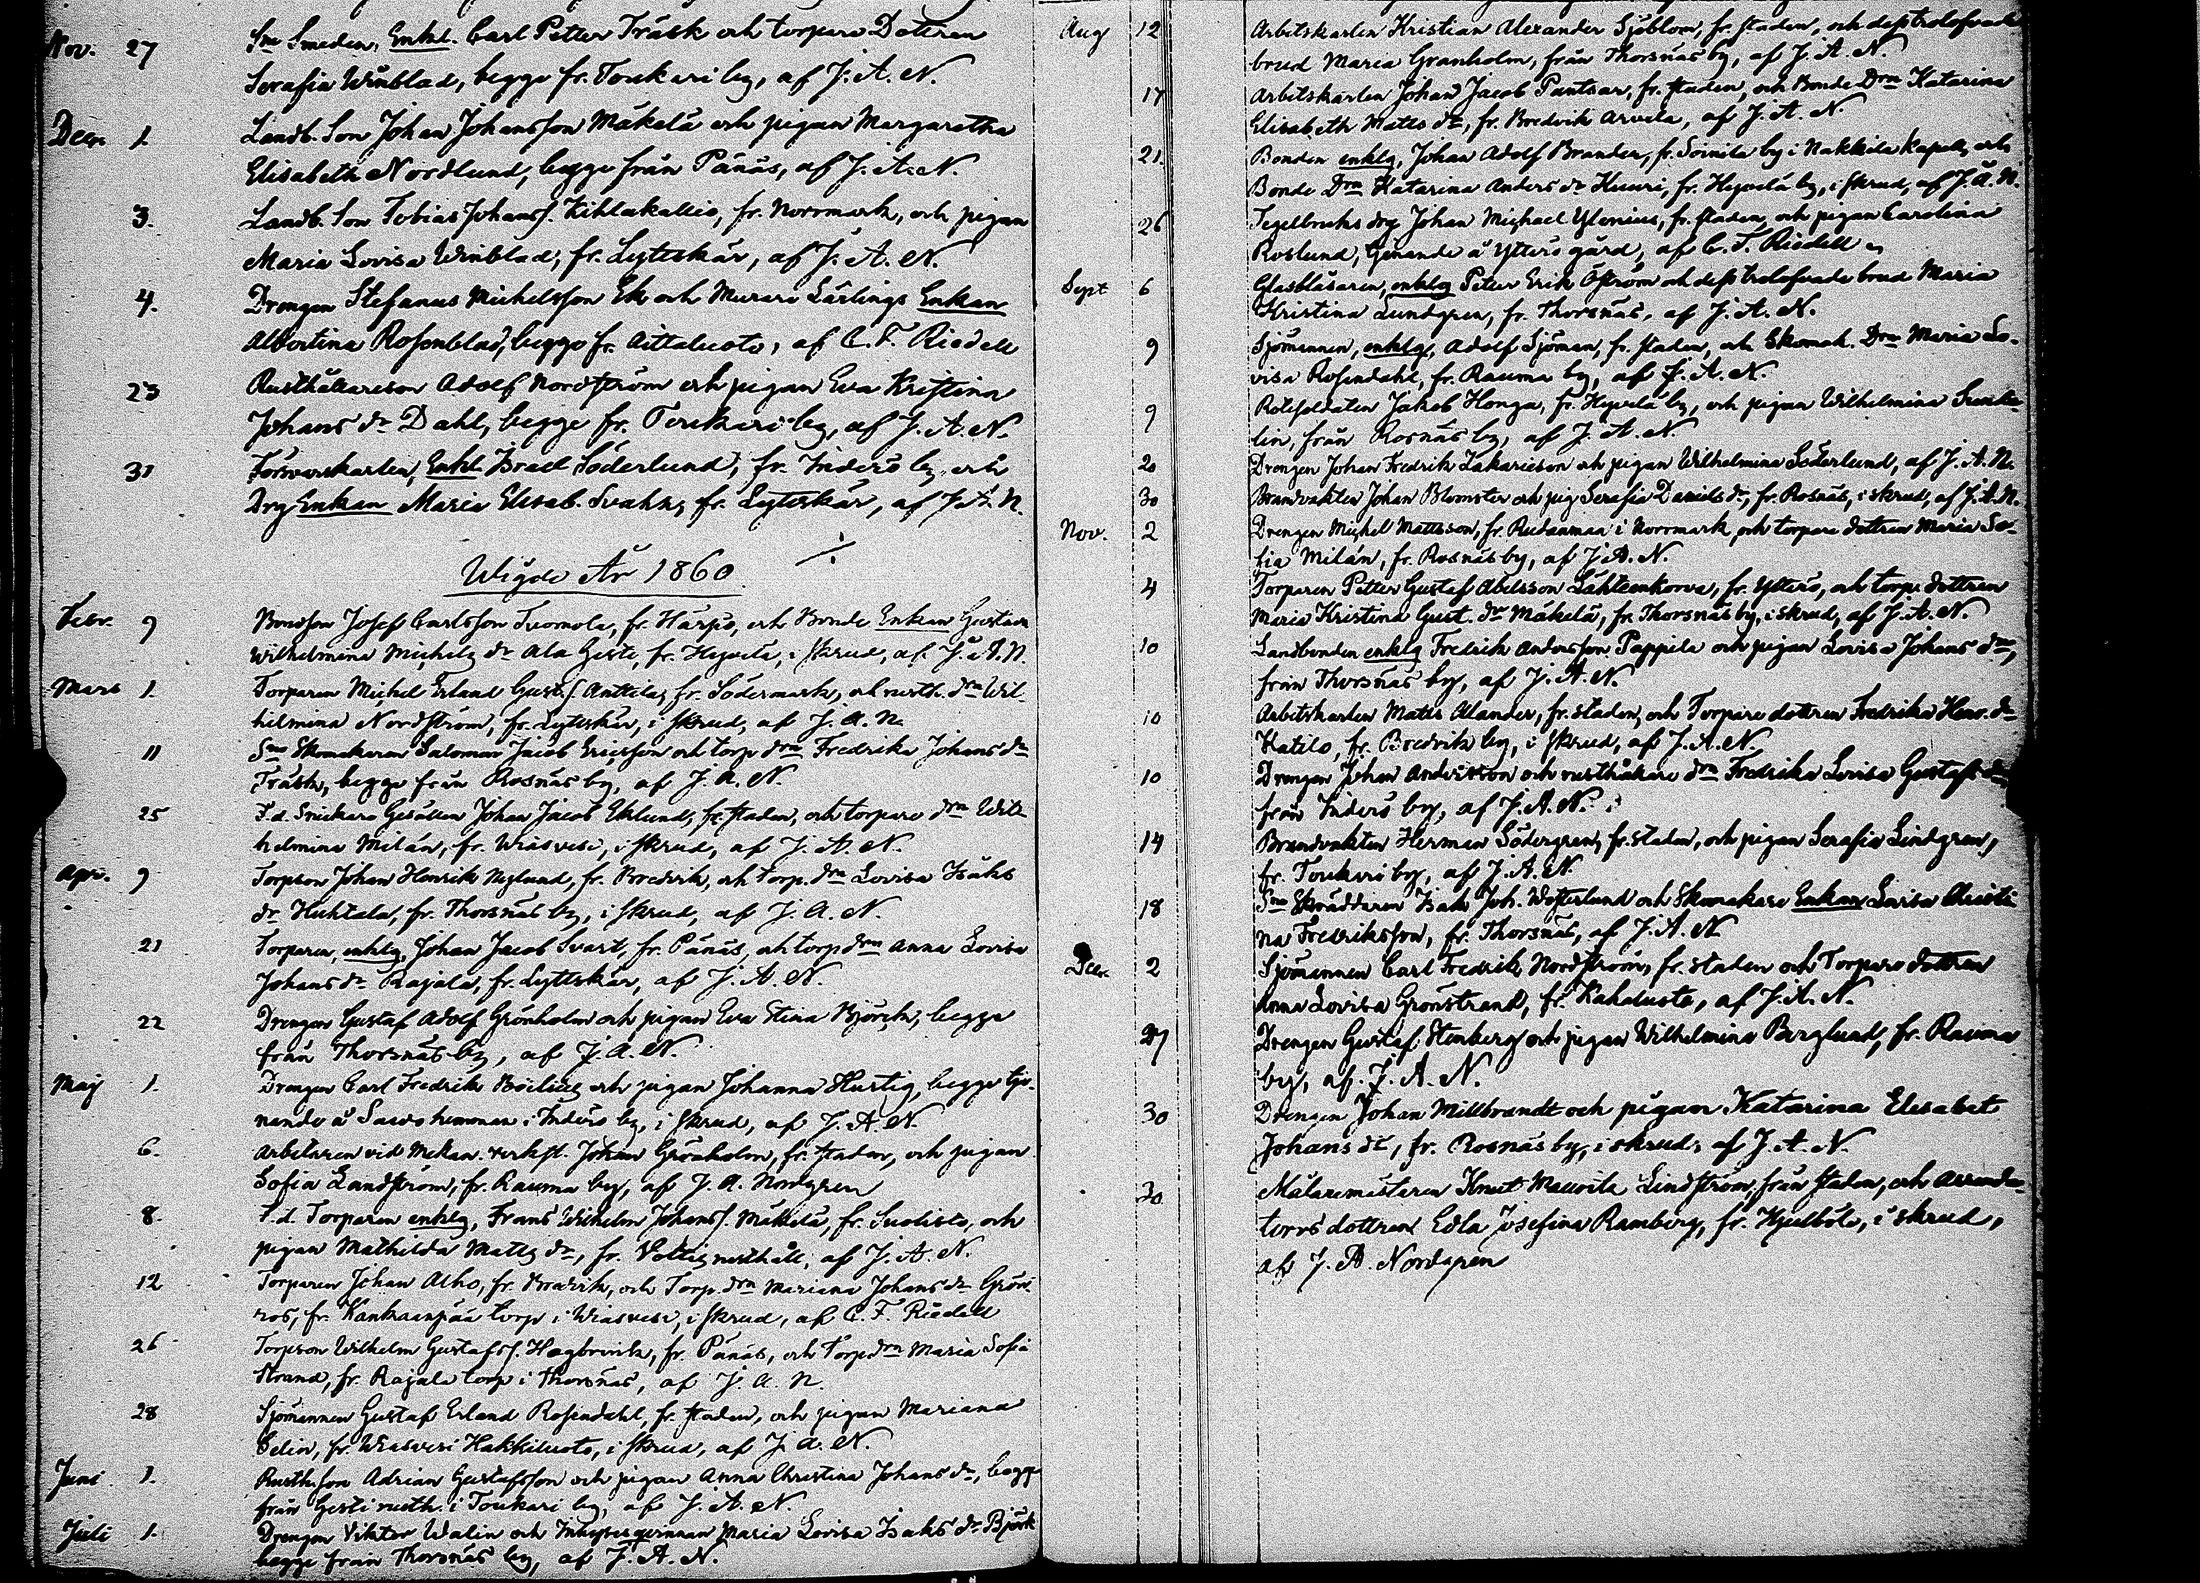 Nov. 27 Sme Smeden, Enkl. Carl Petter Träsk och torpare Dottren
Serafia Winblad, begge fr. Toukari by, af J. A. N.
Decr. 1. Landb. Son Johan Johansson Mäkelä och pigan Margaretha
Elisabeth Nordlund, begge från Pånäs, af J. A. N.
3. Landb. Son Tobias Johanss. Kihlakallio, fr. Norrmark, och pigan
Maria Lovisa Winblad, fr. Lyttskär, af J. A. N.
4. Drengen Stefanus Michelsson Ek och Murare Lärlings Enkan
Albertina Rosenblad, begge fr. Aittaluoto, af C. F. Riedell
23 Rusthållareson Adolf Nordström och pigan Eva Kristina
Johans dr Dahl, begge fr. Toukari by, af J. A. N.
31 Försvarskarlen, Enkl. Israel Söderlund, fr. Inderö by och
Drg Enkan Maria Elisab. Svahn, fr. Lyttskär, af J. A. N.
Wigde År 1860
Febr. 9 Bondson Josef Carlsson Tuomola, fr. Harpö, och Bonde Enkan Gustava
Wilhelmina Michels dr Ala Gisti, fr. Hyvelä, i skrud, af J. A. N.
Mars 1. Torparen Michel Erland Gusts. Anttila, fr. Södermark, och rusth. drn Wil-
helmina Nordström, fr. Lyttskär, i skrud, af J. A. N.
11 Sme Skomakaren Salomon Jacob Ericsson och torp drn Fredrika Johans dr
Träsk, begge från Rosnäs by, af J. A. N.
25 F.d. Snickare Gesällen Johan Jacob Eklund, fr. staden, och torpare drn Wil-
helmina Milán, fr. Wiasvesi, i skrud, af J. A. N.
Apr. 9 Torpson Johan Henrik Nylund, fr. Bredvik, och torp. drn Lovisa Isaks
dr Huhtala, fr. Thorsnäs by, i skrud, af J. A. N.
21 Torparen, enkling, Johan Jacob Svart, fr. Pånäs, och torp drn Anna Lovisa
Johans dr Rajala, fr. Lyttskär, af J. A. N.
22 Drengen Gustaf Adolf Grönholm och pigan Eva Stina Björck, begge
från Thorsnäs by, af J. A. N.
Maj 1. Drengen Carl Fredrik och pigan Johanna Hurtig, begge tje-
nande å hemman i Inderö by, i skrud, af J. A. N.
6. Arbetaren vid Mekan. verkst. Johan Grönholm, fr. staden, och pigan
Sofia Landström, fr. Rauma by, af J. A. Nordgren
8. F.d. Torparen enklg, Frans Wilhelm Johanss. Mäkelä, fr. Suolisto, och
pigan Mathilda Matts dr, fr. rusthåll, af J. A. N.
12 Torparen Johan Alho, fr. Bredvik, och Torp. drn Mariana Johans dr Grön-
ros, fr. Kankaanpää torp i Wiasvesi, i skrud, af C. F. Riedell
26 Torpson Wilhelm Gustafss. Hagbrink, fr. Pånäs, och torp drn Maria Sofia
Strand, fr. Rajala torp i Thorsnäs, af J. A. N.
28 Sjömannen Gustaf Erland Rosendahl, fr. staden, och pigan Mariana
Selin, fr. Wiasvesi Hakkiluoto, i skrud, af J. A. N.
Juni 1. Rusth. son Adrian Gustafsson och pigan Anna Christina Johans dr, begge
från Gisti rusth. i Toukari by, af J. A. N.
Juli 1. Drengen Viktor Walin och Inhyses qvinnan Maria Lovisa Isaks dr Björk
begge från Thorsnäs by, af J. A. N.
Aug 12 Arbetskarlen Kristian Alexander Sjöblom, fr. staden, och dess trolofvade
brud Maria Granholm, från Thorsnäs by, af J. A. N.
17 Arbetskarlen Johan Jacob Pantsar, fr. staden, och Bonde Drn Katarina
Elisabeth Matts dr, fr. Bredvik Arvela, af J. A. N
21. Bonden enklg, Johan Adolf Brander, fr. Soinila by i Nakkila kapell, och
Bonde Drn Katarina Anders dr Kuuri, fr. Hyvelä by, i skrud, af J. A. N.
26 Tegelbruks drg Johan Michael Ylenius, fr. staden, och pigan Carolina
Roslund, tjenande å Ytterö gård, af C. F. Riedell
Sept 6 Glasblåsaren, enklg Petter Erik Öström och dess trolofvade brud Maria
Kristina Lundgren, fr. Thorsnäs, af J. A. N.
9 Sjömannen, enklg, Adolf Sjöman, fr. staden, och Skomak. Drn Maria Lo-
visa Rosendahl, fr. Rauma by, af J. A. N.
9 Rotesoldaten Jakob Honga, fr. Hyvelä by, och pigan Wilhelmina
lin, från Rosnäs by, af J. A. N
20 Drengen Johan Fredrik Zakariesson och pigan Wilhelmina Söderlund, af J. A. N.
30 Brandvakten Johan Blomster och pig Serafia Daniels dr, fr. Rosnäs, i skrud, af J. A. N.
Nov. 2 Drengen Michel Mattsson, fr. Rudanmaa i Norrmark, och torpare dottren Maria So-
fia Milán, fr. Rosnäs by, af J. A. N.
4 Torparen Petter Gustaf Abelsson Lähteenkorva, fr. Ytterö, och torp. dottren
Maria Kristina Gust. dr Mäkelä, fr. Thorsnäs by, i skrud, af J. A. N.
10 Landbonden enklg Fredrik Andersson Pappila och pigan Lovisa Johans dr,
från Thorsnäs by, af J. A. N.
10 Arbetskarlen Matts Alander, fr. staden, och Torpare dottren Fredrika Henr. dr
Katilo, fr. Bredvik by, i skrud, af J. A. N.
10 Drengen Johan Andersson och rusthållare drn Fredrika Lovisa Gustafs dr
från Inderö by, af J. A. N.
14 Brandvakten Herman Södergren, fr. staden, och pigan Serafia Lindgren,
fr. Toukari by, af J. A. N
18 Sne Skräddaren Isak Joh. Westerlund och Skomakare Enkan Lovisa Christi-
na Fredriksson, fr. Thorsnäs, af J. A. N
Decr. 2 Sjömannen Carl Fredrik Nordström, fr. staden och Torpare dottren
Anna Lovisa Grönstrand, fr. Kahaluoto, af J. A. N.
27 Drengen Gustaf Stenberg och pigan Wilhelmina Berglund, fr. Rauma
by, af J. A. N.
30 Drengen Johan Millbrandt och pigan Katarina Elisabet
Johans dr, fr. Rosnäs by, i skrud, af J. A. N.
30 Målaremästaren Knut Mauritz Lindström, från staden, och arrenda-
tors dottren Edla Josefina Ramberg, fr. Hjulböle, i skrud,
af J. A. Nordgren